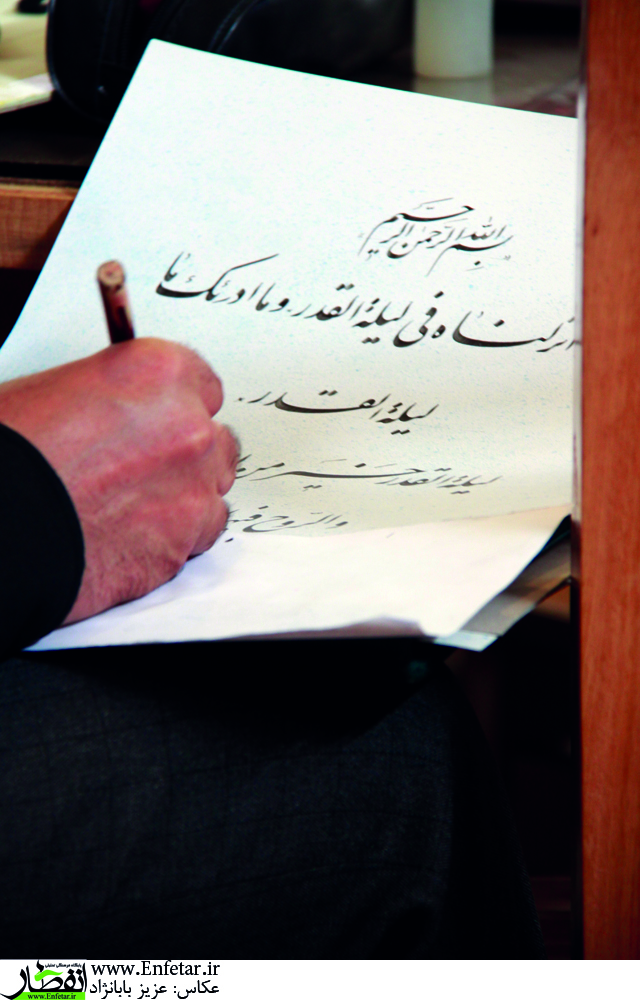 بسم الله الرحمن الرحیم
انزلناه فی لیلة القدر و ما ادریٰک ما
لیلة القدر.
لیلة القدر خیر من
والروح فیها
پایگاه فرهنگی تحلیلی
انفطار
www.Enfetar.ir
www.Enfetar.ir
عکاس: عزیز بابانژاد